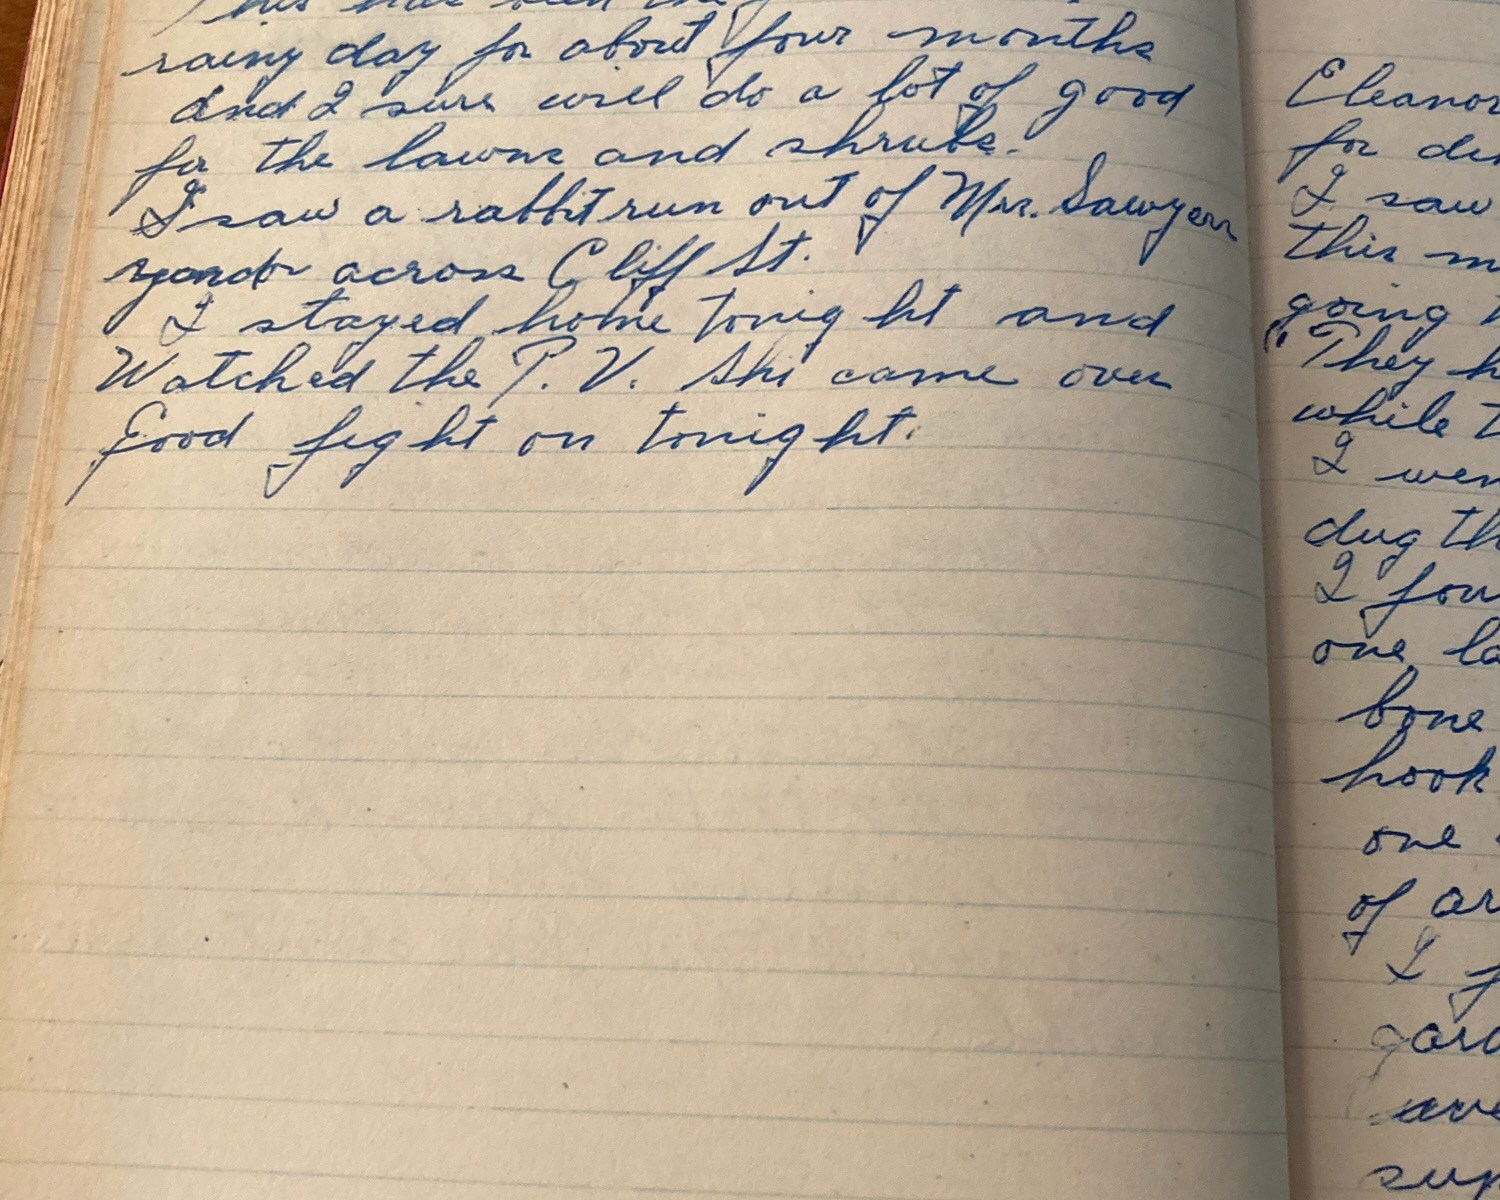 This has been the
rainy day for about four months
and I sure will do a lot of good
for the lawns and shrubs.
I saw a rabbit run out of Mrs. Sawyers
yard across Cliff St.
I stayed home tonight and
Watched the T.V. Ski came over
Good fight on tonight.
Eleanor
for
I saw
this
going
"They
while
I
dug
I
one
bone
hook
one
of
I